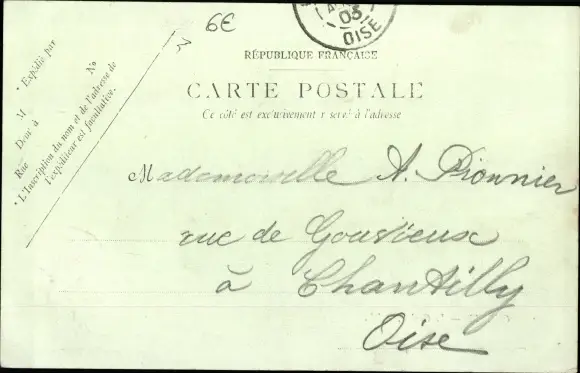 6€
03
OISE
RÉPUBLIQUE FRANÇAISE
CARTE POSTALE
Ce côté est exclusivement réservé à l'adresse
* Expédié par
M
Demt à
Rue
No
* L'Inscription du nom et de l'adresse de
l'expéditeur est facultative.
Mademoiselle A. Pionnier
rue de Gouvieux
à Chantilly
Oise